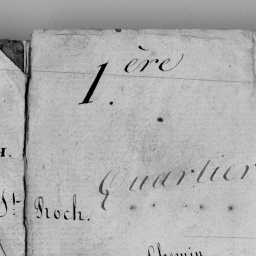 1.ère
Quartier
St. Roch.
Chemin